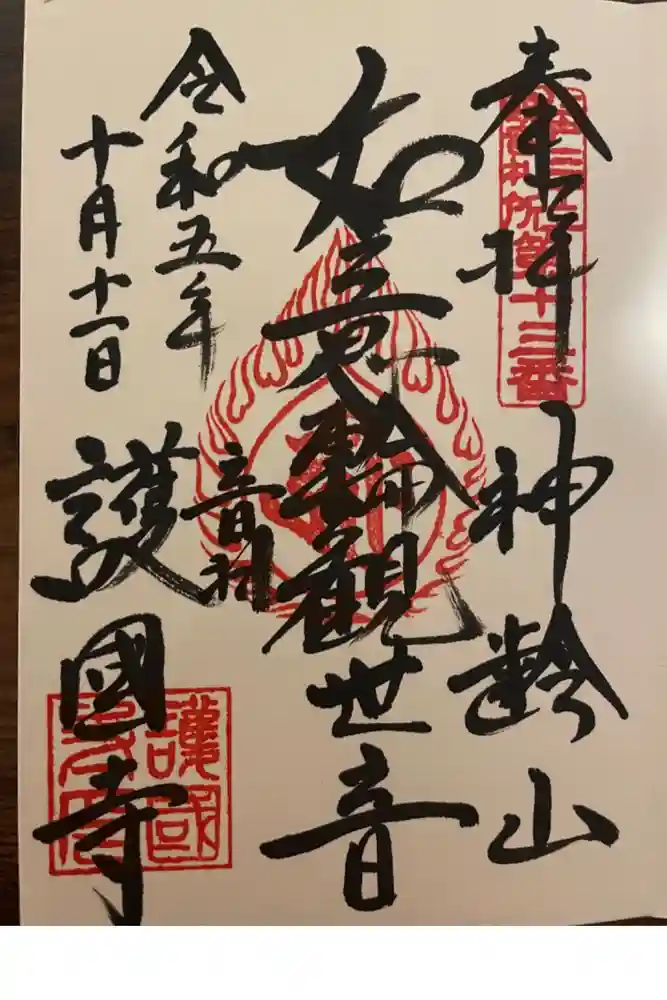 奉拝
神齢山
第十三番
如意輪観世音
音羽
護國寺
令和五年
十月十一日
護國